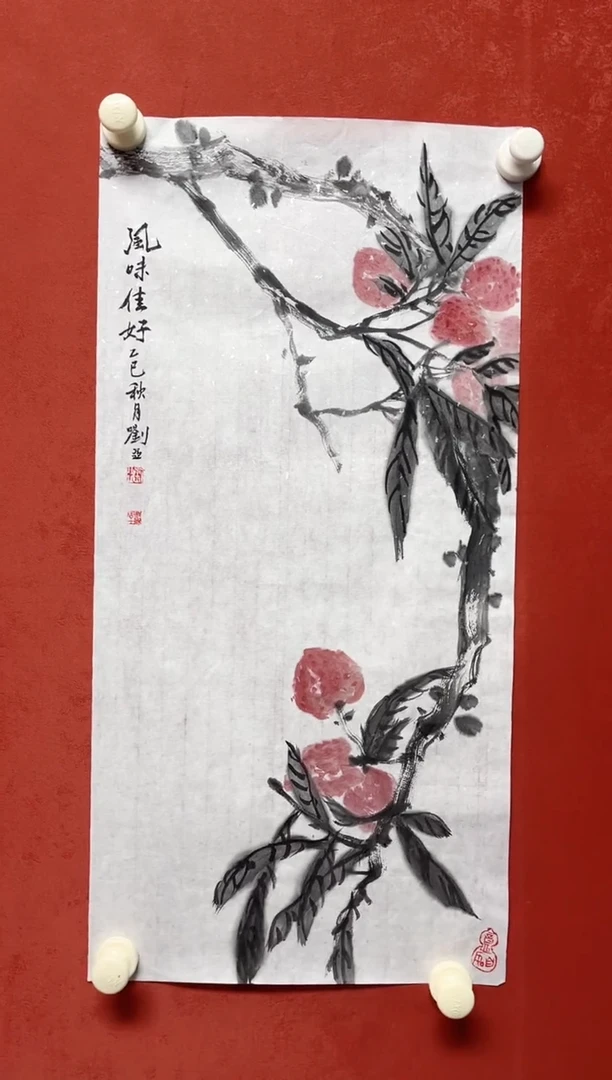 風味佳好乙巳秋月劉亞